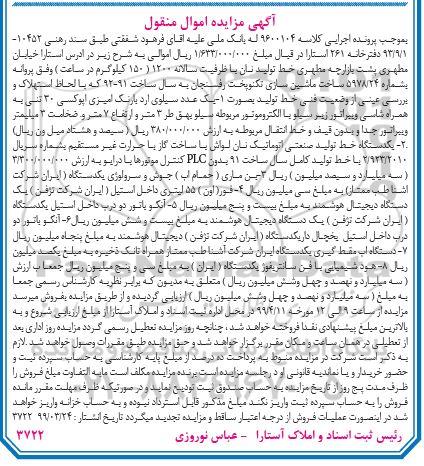 آگهی مزایده اموال منقول
بموجب پرونده اجرایی کلاسه ۹۶۰۰۱۰۴ له بانک ملی علیه اقای فرهود شفقتی طبق سند رهنی ۱۰۴۵۲-
۹۳/۹/۱ دفترخانه ۲۶۱ استارا در قبال مبلغ ۱/۶۳۳/۰۰۰/۰۰۰ ریال اموالی به شرح زیر در ادرس استارا خیابان
مطهری پشت بازارچه مطهری خط تولید نان با ظرفیت سالانه ۱۲۰۰ ( ۱۵۰ کیلوگرم در ساعت ) وفق پروانه
بشماره ۵۹۷۸/۲۴ ساخت ماشین سازی نکوپخت رفسنجان به سال ساخت ۹۱-۹۲ که با لحاظ استهلاک و
بررسی عینی از وضعیت فنی خط تولید بصورت ۱-یک عدد سیلوی ارد بارنک امیزی اپوکسی ۳۰ تنی به
همراه شاسی ویبراتور زیر سیلو با الکتروموتور مربوطه سیلو بهق طر ۳ متر و ارتفاع ۷ متر و ضخامت ۳ میلیمتر
ویبراتور جدا و بدون قیف و خط انتقال مربوطه به ارزش ۳۸۰/۰۰۰/۰۰۰ ریال ( سیصد و هشتاد میل ون ریال)
۲- یکدستگاه خط تولید صنعتی اتوماتیک نان لواش با ساخت گاز با حرارت غیر مستقیم بشماره سریال
۲/۹۴۳/۲۰۱۰ با خط تولید کامل سال ساخت ۹۱ بدون PLC کنترل موتورها با درایو به ارزش ۳/۳۰۰/۰۰۰/۰۰۰
( سه میلیارد و سیصد میلیون ) ریال ۳-بن ماری ( حمام اب ) جوش و سرولوژی یکدستگاه ( ایران شرکت
اشنا طب ممتاز) به مبلغ سی میلیون ریال ۴-فور( اون) ۵۵ لیتری داخل استیل ( ایران شرکت تژفن ) یک
دستگاه دیجیتال هوشمند به مبلغ بیست و پنج میلیون ریال ۵- آنکو باتور دو درب داخل استیل یکدستگاه
( ایران شرکت تژفن ) یک دستگاه دیجیتال هوشمند به مبلغ بیست و شش میلیون ریال ۶- آنکو باتور دو
درب داخل استیل یخچال دار یکدستگاه ( ایران شرکت تژفن ) دیجیتال هوشمند به مبلغ پنجاه میلیون ریال
۷- دستگاه اب مقطر گیری یکدستگاه ایران شرکت آشنا طب ممتاز همراه تانک ذخیره به مبلغ یکصد میلیون
ریال ۸- هود شیمیایی با فن سانتریفوژ یکدستگاه ( ایران ) به مبلغ سی و پنج میلیون ریال جمعا ب ارزش
( سه میلیارد و نهصد و چهل وشش میلیون ریال ) متعلق به مدیون که برابر نظریه کارشناس رسمی جمعا
به مبلغ ( سه میلیارد و نهصد و چهل وشش میلیون ریال ) ارزیابی گردیده و از طریق مزایده بفروش میرسد
مزایده از ساعت ۹ الی ۱۲ مورخه ۹۹/۴/۱۱ در محل اداره ثبت اسناد و املاک آستارا از مبلغ ارزیابی شروع و به
بالاترین مبلغ پیشنهادی نقدا فروخته خواهد شد ، چنانچه روز مزایده تعطیل رسمی گردد مزایده روز اداری بعد
از تعطیلی در همان ساعت و مکان مقرر برگزار خواهد شد و حق مزایده طبق مقررات وصول خواهد شد لازم
به ذکر است شرکت در مزایده منوط به پرداخت ده درصد از مبلغ پایه کارشناسی به حساب سپرده ثبت و
حضور خریدار و یا نماینده قانونی او در جلسه مزایده است برنده مزایده مکلف است مابه التفاوت مبلغ فروش را
ظرف مدت پنج روز از تاریخ مزایده به حساب صندوق ثبت تودیع نماید و در صورتیکه ظرف مهلت مقرر مانده
فروش را به حساب سپرده ثبت واریز نکند مبلغ مذکور قابل استرداد نبوده و به حساب خزانه واریز خواهد
شد در اینصورت عملیات فروش از درجه اعتبار ساقط و مزایده تجدید میگردد تاریخ انتشار : ۹۹/۰۳/۲۴ ۳۷۲۲
رئیس ثبت اسناد و املاک آستارا - عباس نوروزی ۳۷۲۲